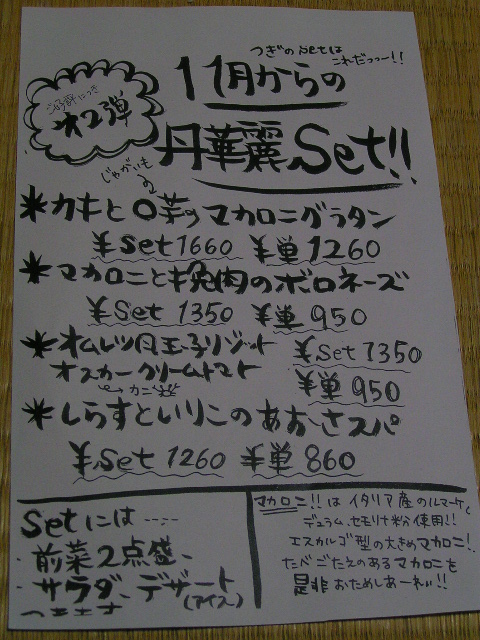 つぎのsetは
これだっつー!!
ご好評につき
オ2弾
11月からの
丹華麗Set!!
じゃがいも
*カキと〇芋のマカロニグラタン
¥Set1660 ¥単1260
*マカロニと挽肉のボロネーズ
¥Set 1350 ¥単950
*オムレツ風玉子リゾット ¥Set 1350
オスカークリームトマト
¥単950
カニ
*しらすといりこのあおさスパ
¥Set 1260 ¥単860
Setには……
前菜2点盛、
サラダ、デザート
(アイス)
マカロニ!!はイタリア産のルマーケ、
デュラムセモリナ粉使用!!
エスカルゴ型の大きめマカロニ!
たべごたえのあるマカロニを
是非おためしあーれぃ!!